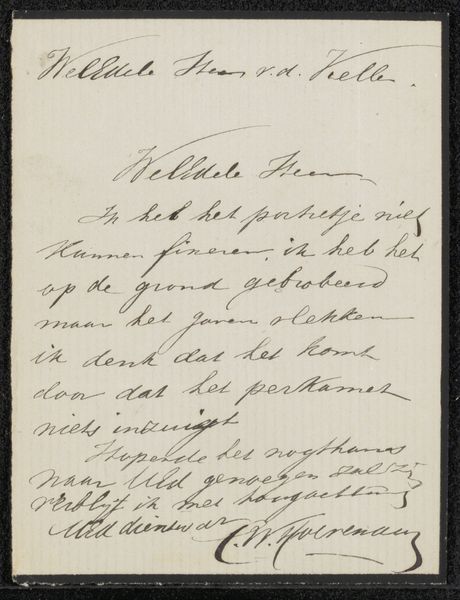 WelEdele Heer v.d. Kelle.
WelEdele Heer
Ik heb het portretje niet
kunnen fixeren, ik heb het
op de grond geprobeerd
maar het gaven vlekken
ik denk dat het komt
door dat het perkamet
niets inzuigt
Hopende het nogthans
naar Uld genoegen zal zijn
verblijf ik met hoogachting
Uld dienaar